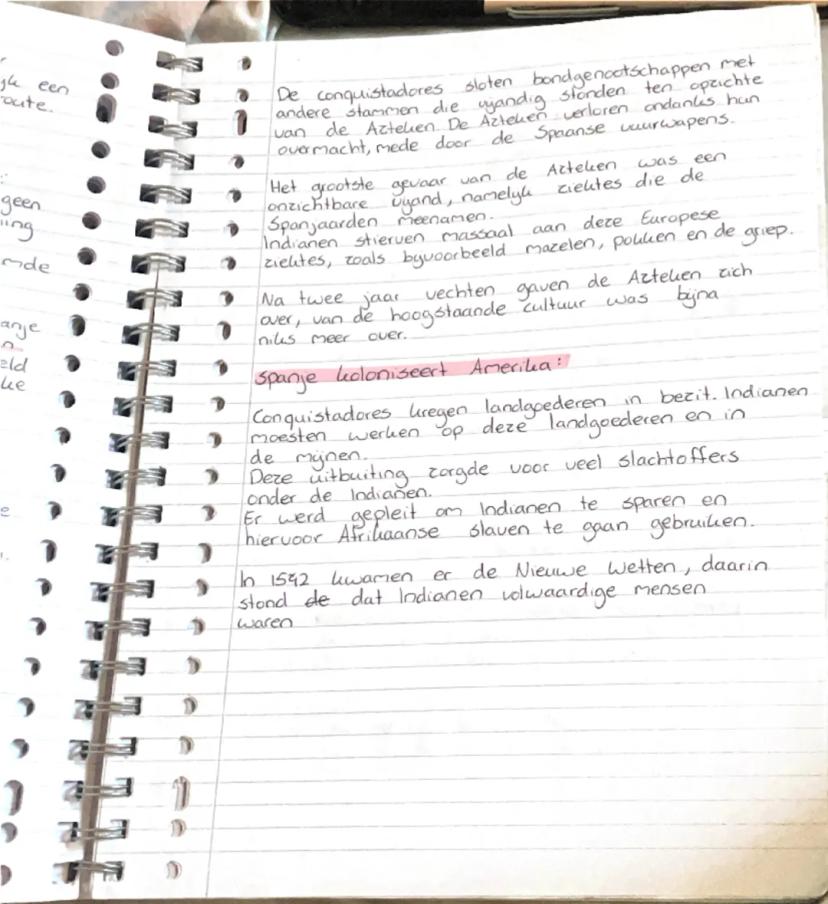 jk een
oute.
:
geen
ing
mde
anje
n
eld
ke
e
De conquistadores sloten bondgenootschappen met
andere stammen die vijandig stonden ten opzichte
van de Azteken. De Azteken verloren ondanks hun
overmacht, mede door de Spaanse vuurwapens.
Het grootste gevaar van de Azteken was een
onzichtbare vijand, namelijk ziektes die de
Spanjaarden meenamen.
Indianen stierven massaal aan deze Europese
ziektes, zoals bijvoorbeeld mazelen, pokken en de griep.
Na twee jaar vechten gaven de Azteken zich
over, van de hoogstaande cultuur was bijna
niks meer over.
Spanje koloniseert Amerika:
Conquistadores kregen landgoederen in bezit. Indianen
moesten werken op deze landgoederen en in
de mijnen.
Deze uitbuiting zorgde voor veel slachtoffers
onder de Indianen.
Er werd gepleit om Indianen te sparen en
hiervoor Afrikaanse slaven te gaan gebruiken.
In 1542 kwamen er de Nieuwe Wetten, daarin
stond de dat Indianen volwaardige mensen
waren